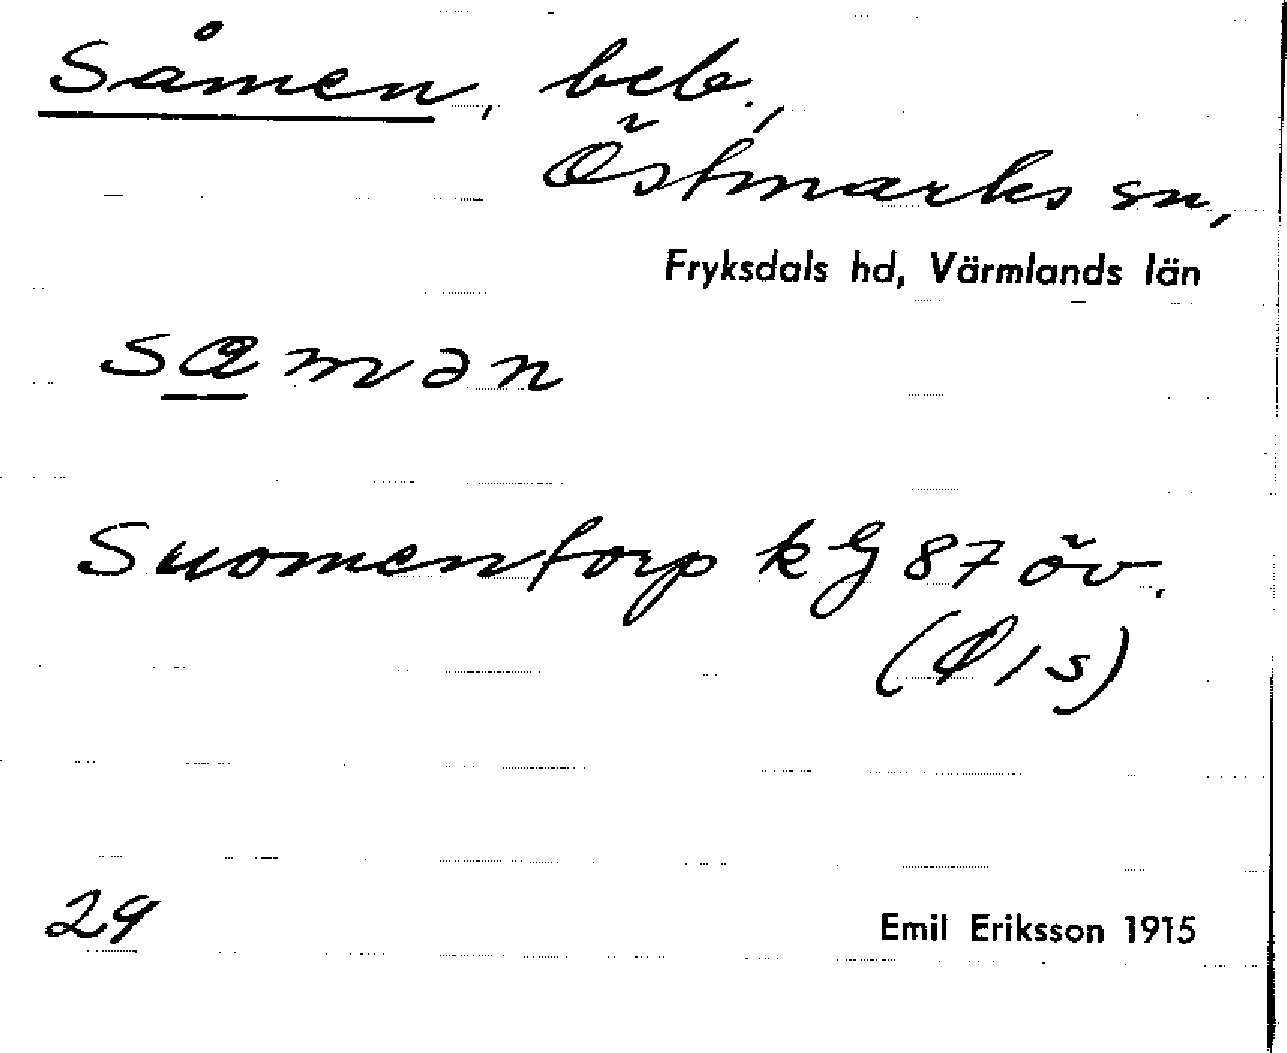 Såmen, beb.,
Östmarks sn,
Fryksdals hd, Värmlands län
samən
Suomentorp kG 87 öv.
29
Emil Eriksson 1915